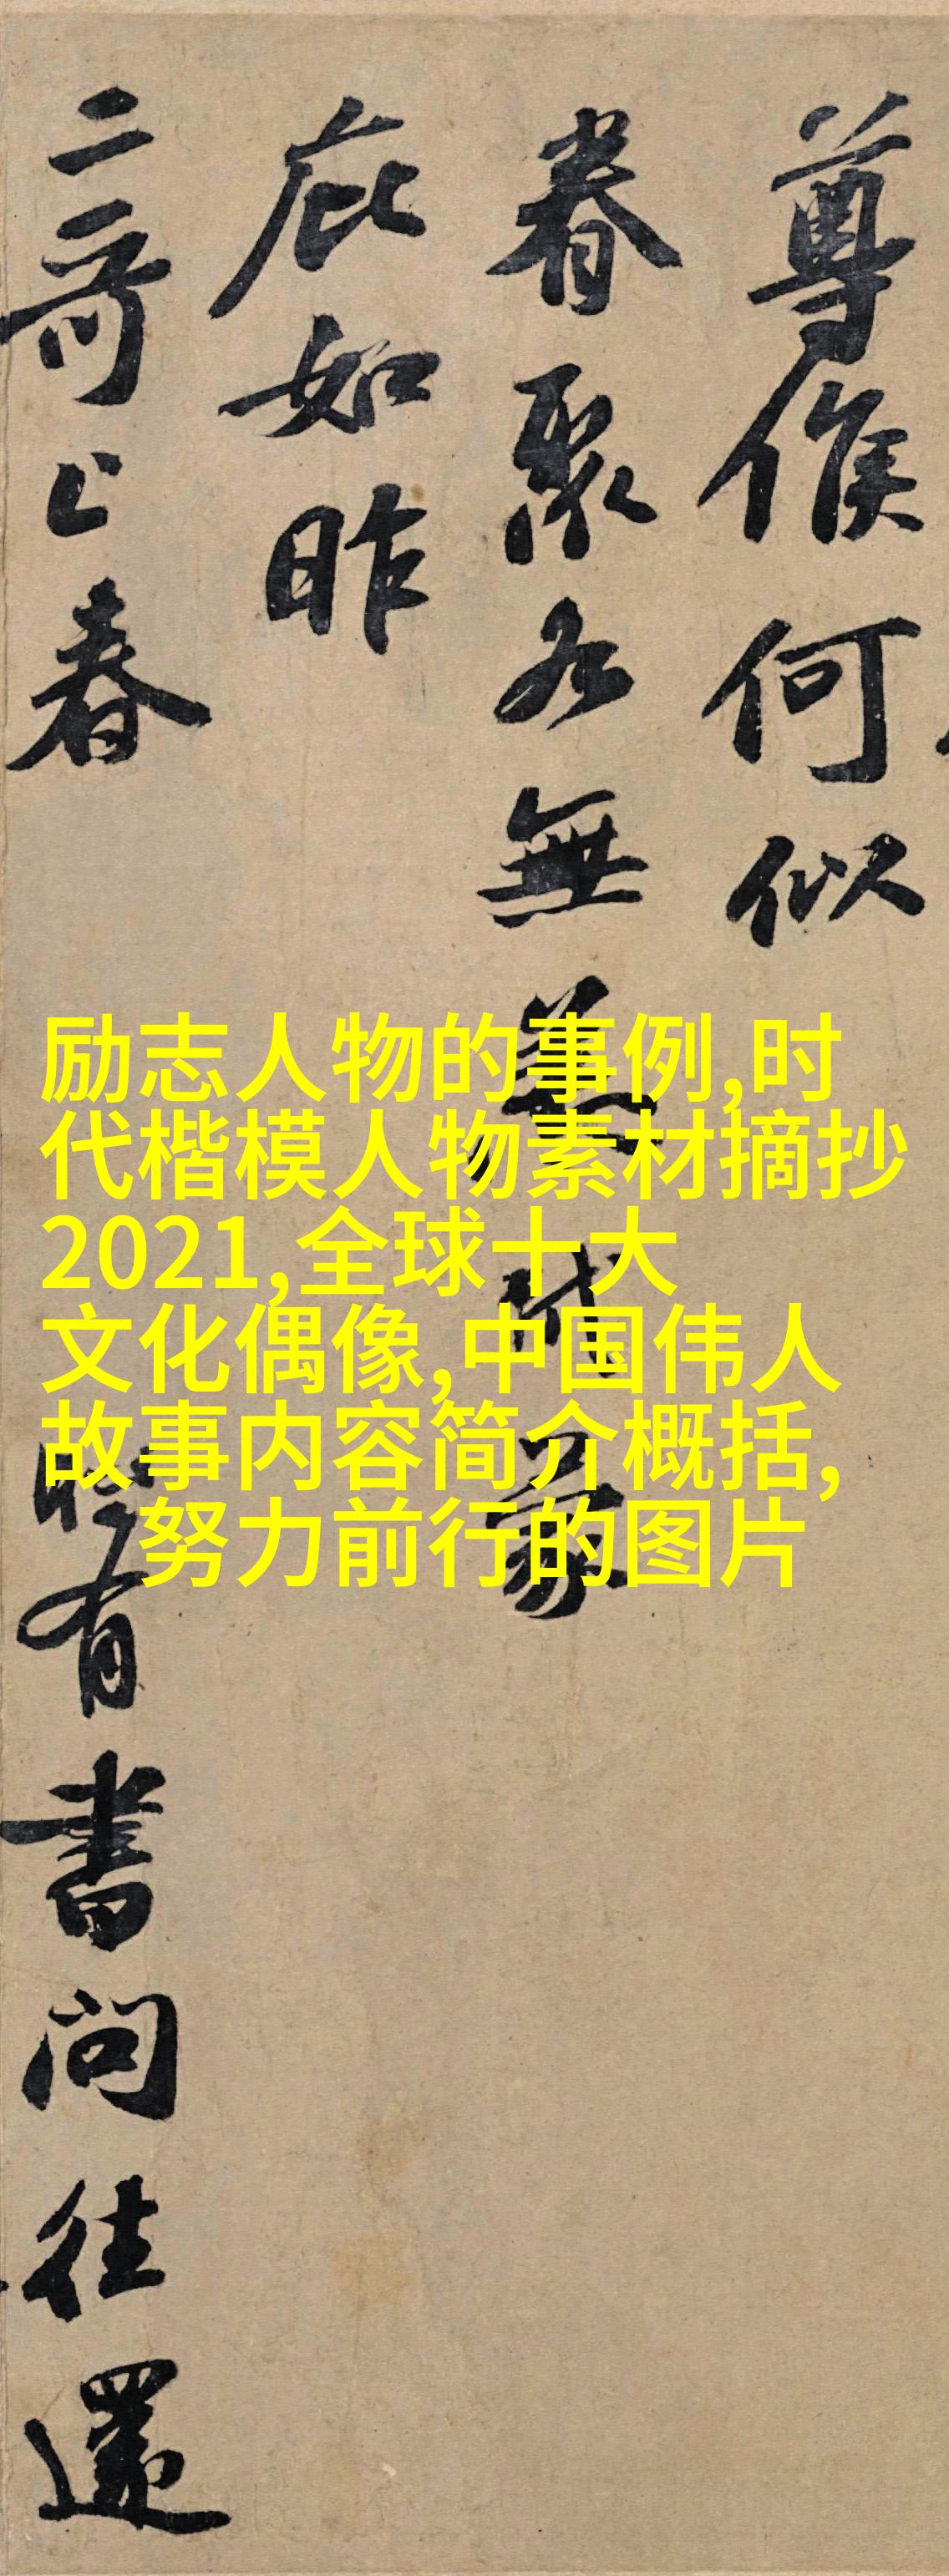 尊候何似
眷聚各無恙附蒙
庇如昨
二哥上春 時有書問往還
励志人物的事例,时
代楷模人物素材摘抄
2021,全球十大
文化偶像,中国伟人
故事内容简介概括,
努力前行的图片